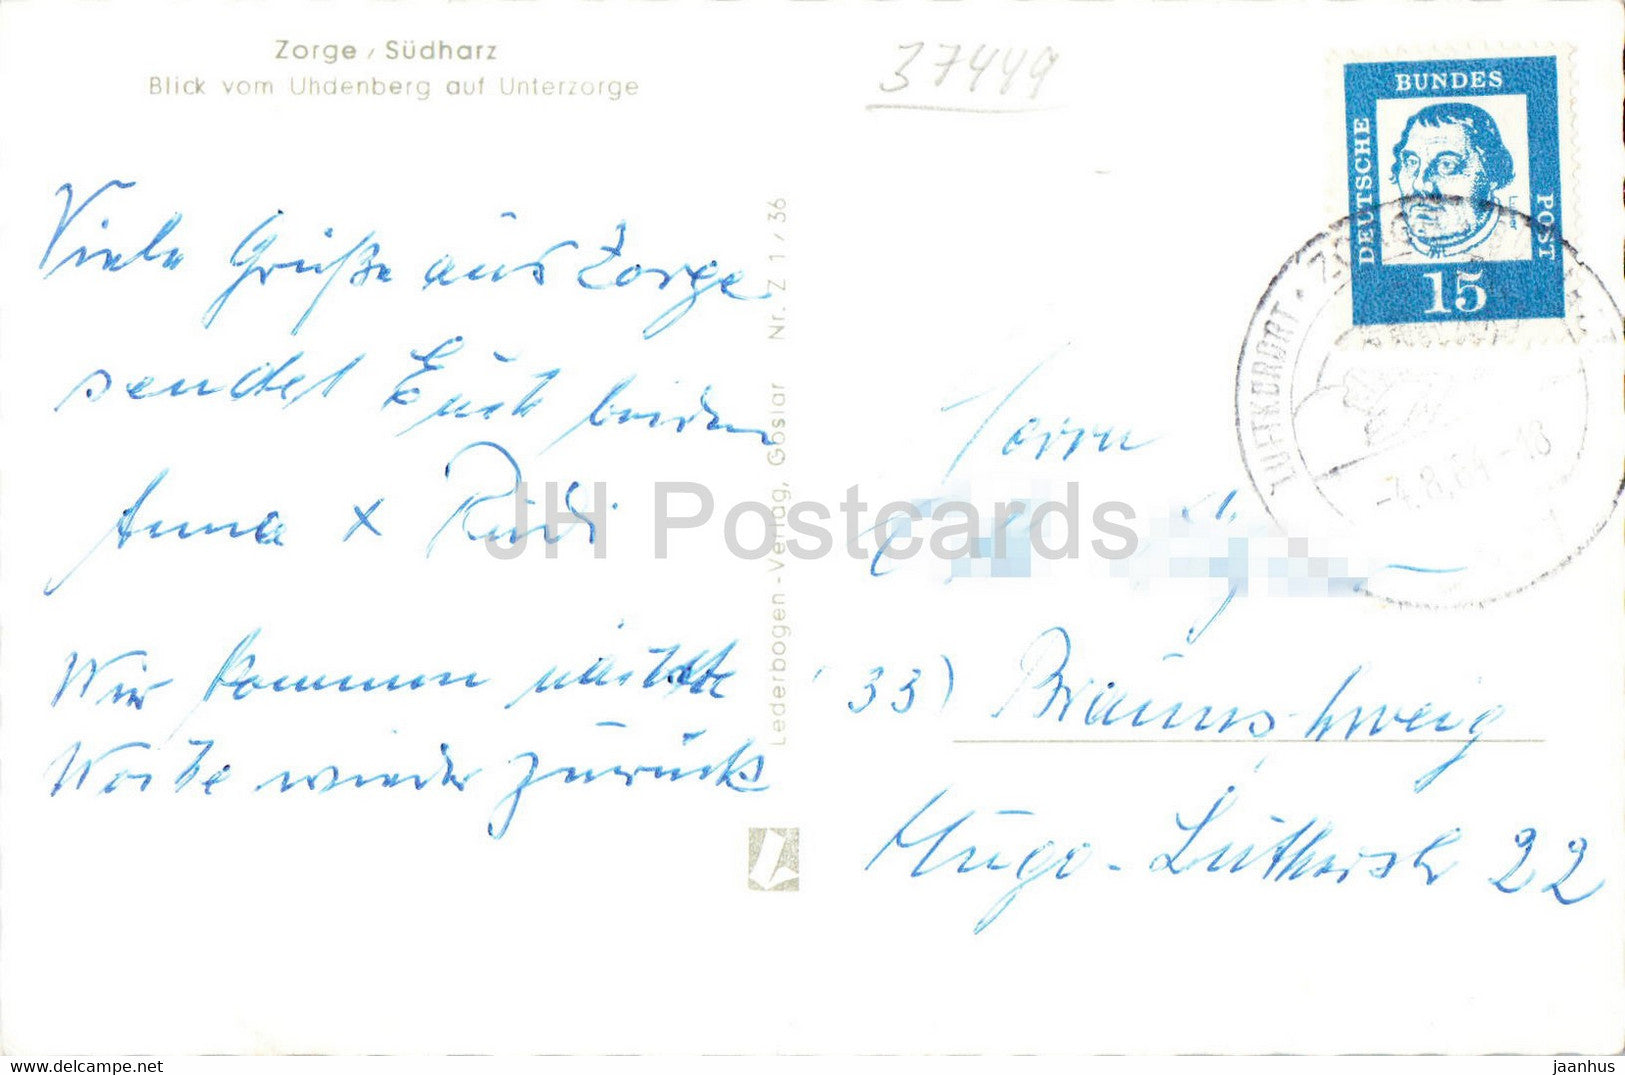 Zorge / Südharz
Blick vom Uhdenberg auf Unterzorge
37449
Viele Grüße aus Zorge
sendet Euch beiden
Anna x Rudi
Wir kommen nächste
Woche wieder zurück
Lederbogen-Verlag, Goslar Nr. Z 1/36
DEUTSCHE
BUNDES
POST
Luther
15
LUFTKURORT
-4.8.64-18
Herrn
(33) Braunschweig
Hugo-Lutherstr 22
JH Postcards
delcampe.net
jaanhus